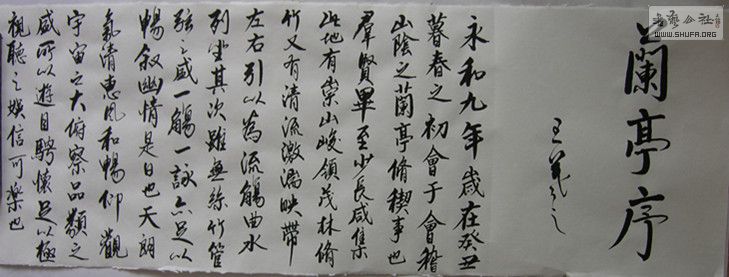 蘭亭序
王羲之
永和九年歲在癸丑
暮春之初會于會稽
山陰之蘭亭脩稧事也
羣賢畢至少長咸集
此地有崇山峻領茂林脩
竹又有清流激湍映帶
左右引以為流觴曲水
列坐其次雖無絲竹管
弦之盛一觴一詠亦足以
暢敘幽情是日也天朗
氣清惠風和暢仰觀
宇宙之大俯察品類之
盛所以遊目騁懷足以極
視聽之娛信可樂也
WWW.SHUFA.ORG